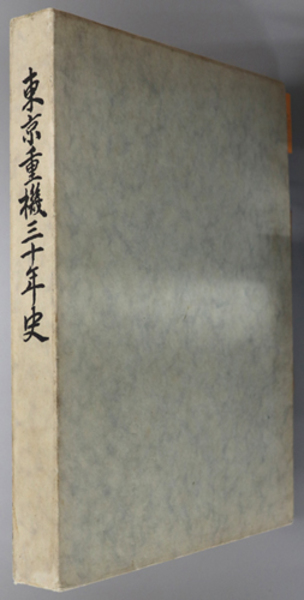 東京重機三十年史